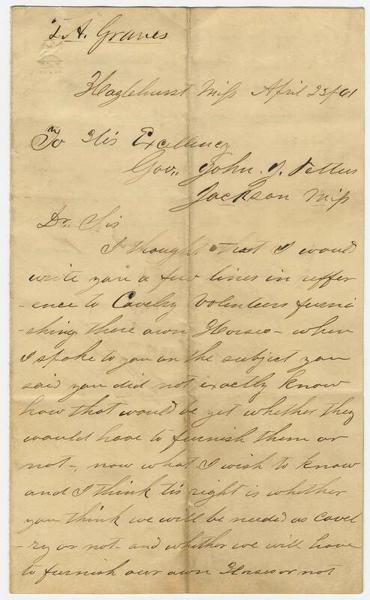 T. A. Graves
Hazlehurst Miss April 23/61
To His Excellency
Gov. John J. Pettus
Jackson Miss
Dr. Sir
I thought that I would
write you a few lines in reffer
-ence to Cavelry Volunteers furni
-shing there own Horses - when
I spoke to you on the subject you
said you did not exactly know
how that would be yet whether they
would have to furnish them or
not -, now what I wish to know
and I think tis right is whether
you think we will be needed as Cavel
-ry or not - and whether we will have
to furnish our own Horses or not